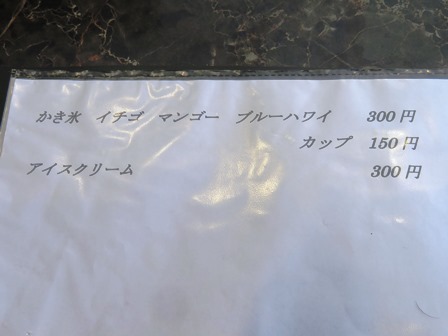 かき氷　イチゴ　マンゴー　ブルーハワイ　300円
カップ　150円
アイスクリーム　300円